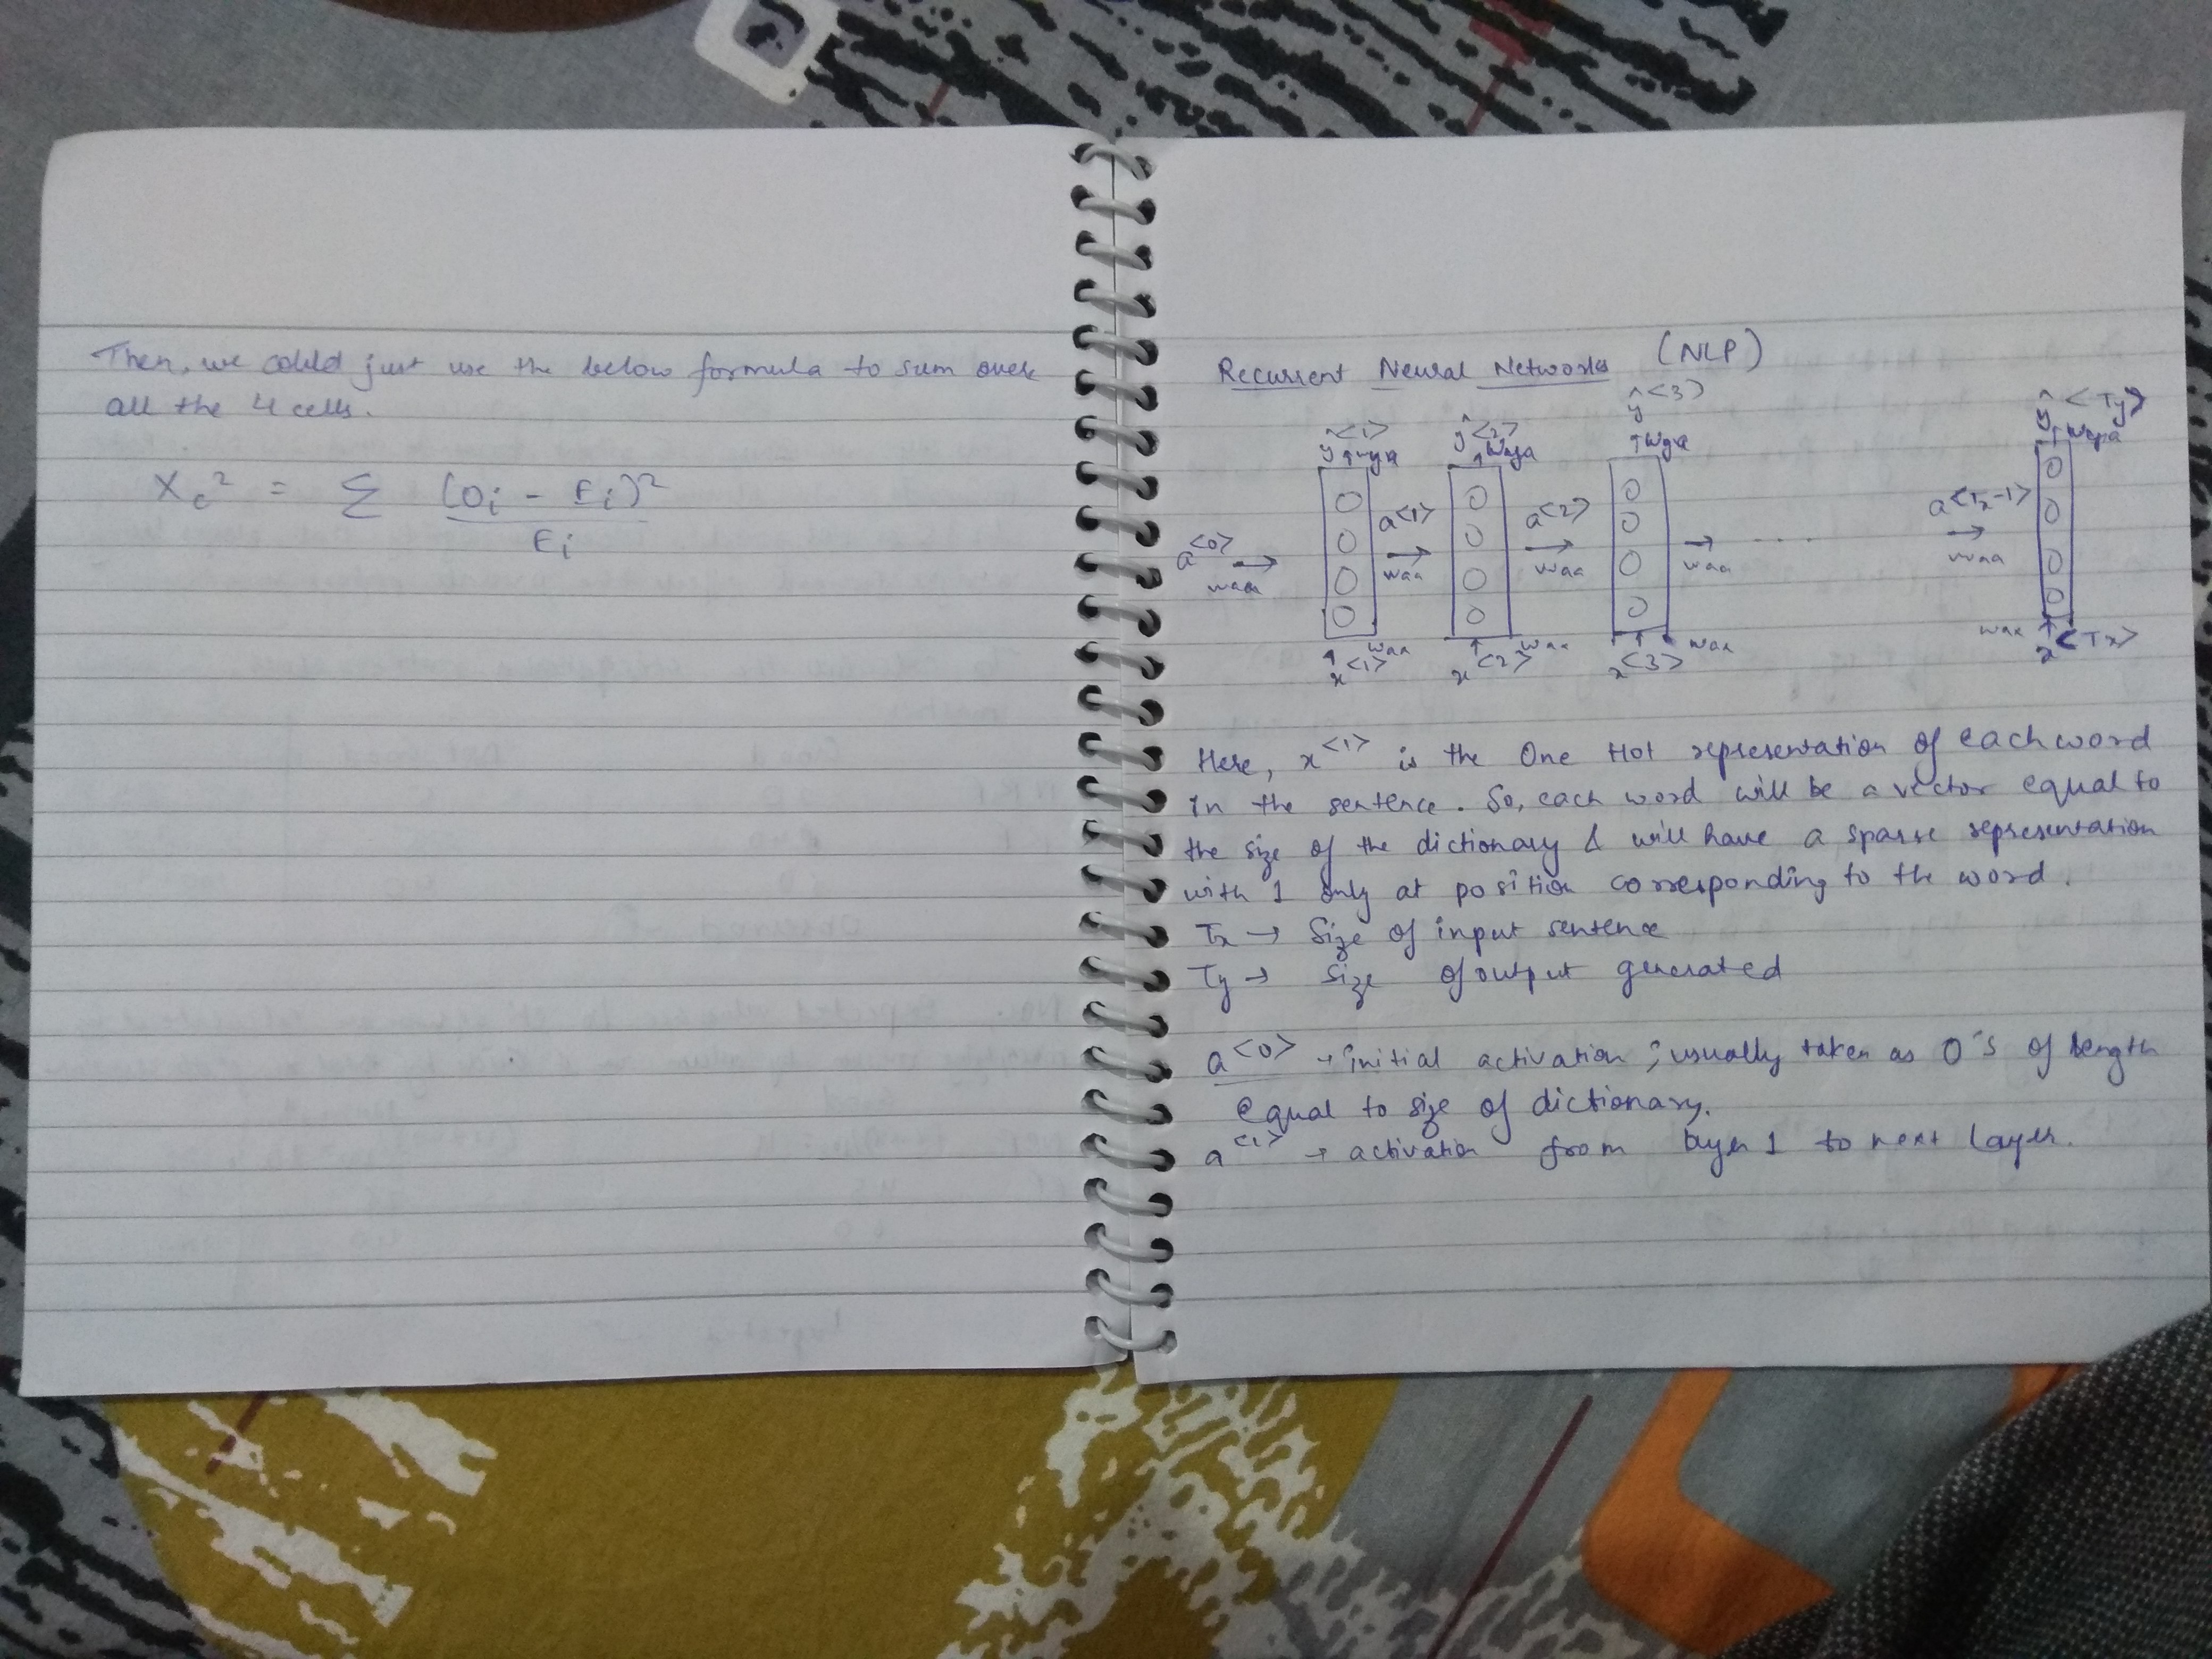 Then, we could just use the below formula to sum over
all the 4 cells.
X_c² = Σ (O_i - E_i)² / E_i
Recurrent Neural Networks (NLP)
ŷ<1> ŷ<2> ŷ<3> ŷ<Ty>
↑Wya ↑Wya ↑Wya ↑Wya
a<0> → a<1> → a<2> → → .... a<Tx-1> →
Waa Waa Waa Waa Waa
↑ Wax ↑ Wax ↑ Wax Wax ↑
x<1> x<2> x<3> x<Tx>
Here, x<1> is the One Hot representation of each word
in the sentence. So, each word will be a vector equal to
the size of the dictionary & will have a sparse representation
with 1 only at position corresponding to the word.
Tx → Size of input sentence
Ty → Size of output generated
a<0> → initial activation ; usually taken as 0's of length
equal to size of dictionary.
a<1> → activation from layer 1 to next layer.